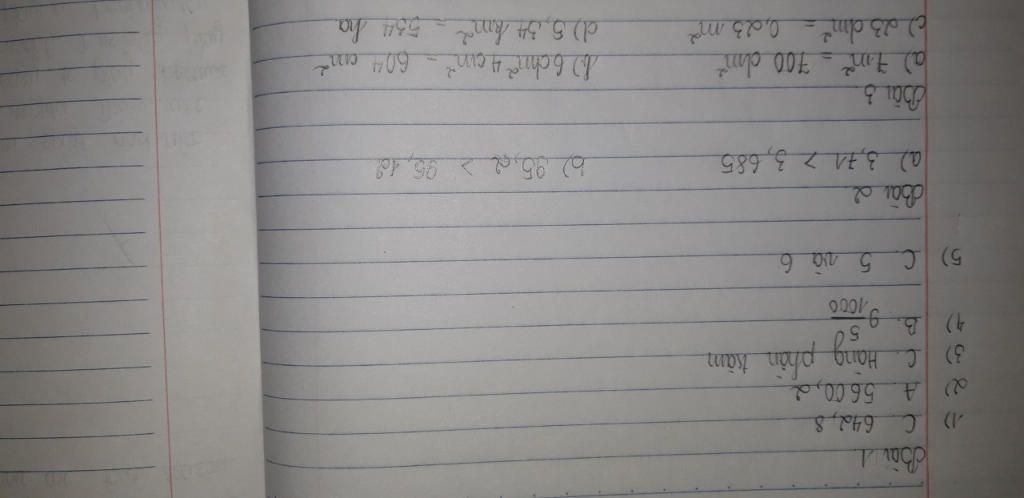 Bài 1.
1) C 642,8
2) A 5600,2
3) C. Hàng phần trăm
4) B. 9 58/1000
5) C 5 và 6
Bài 2
a) 3,71 > 3,685 b) 95,2 > 95,12
Bài 3.
a) 7m² = 700 dm² b) 6dm²4cm² = 604 cm²
c) 23dm² = 0,23 m² d) 5,34 km² = 534 ha